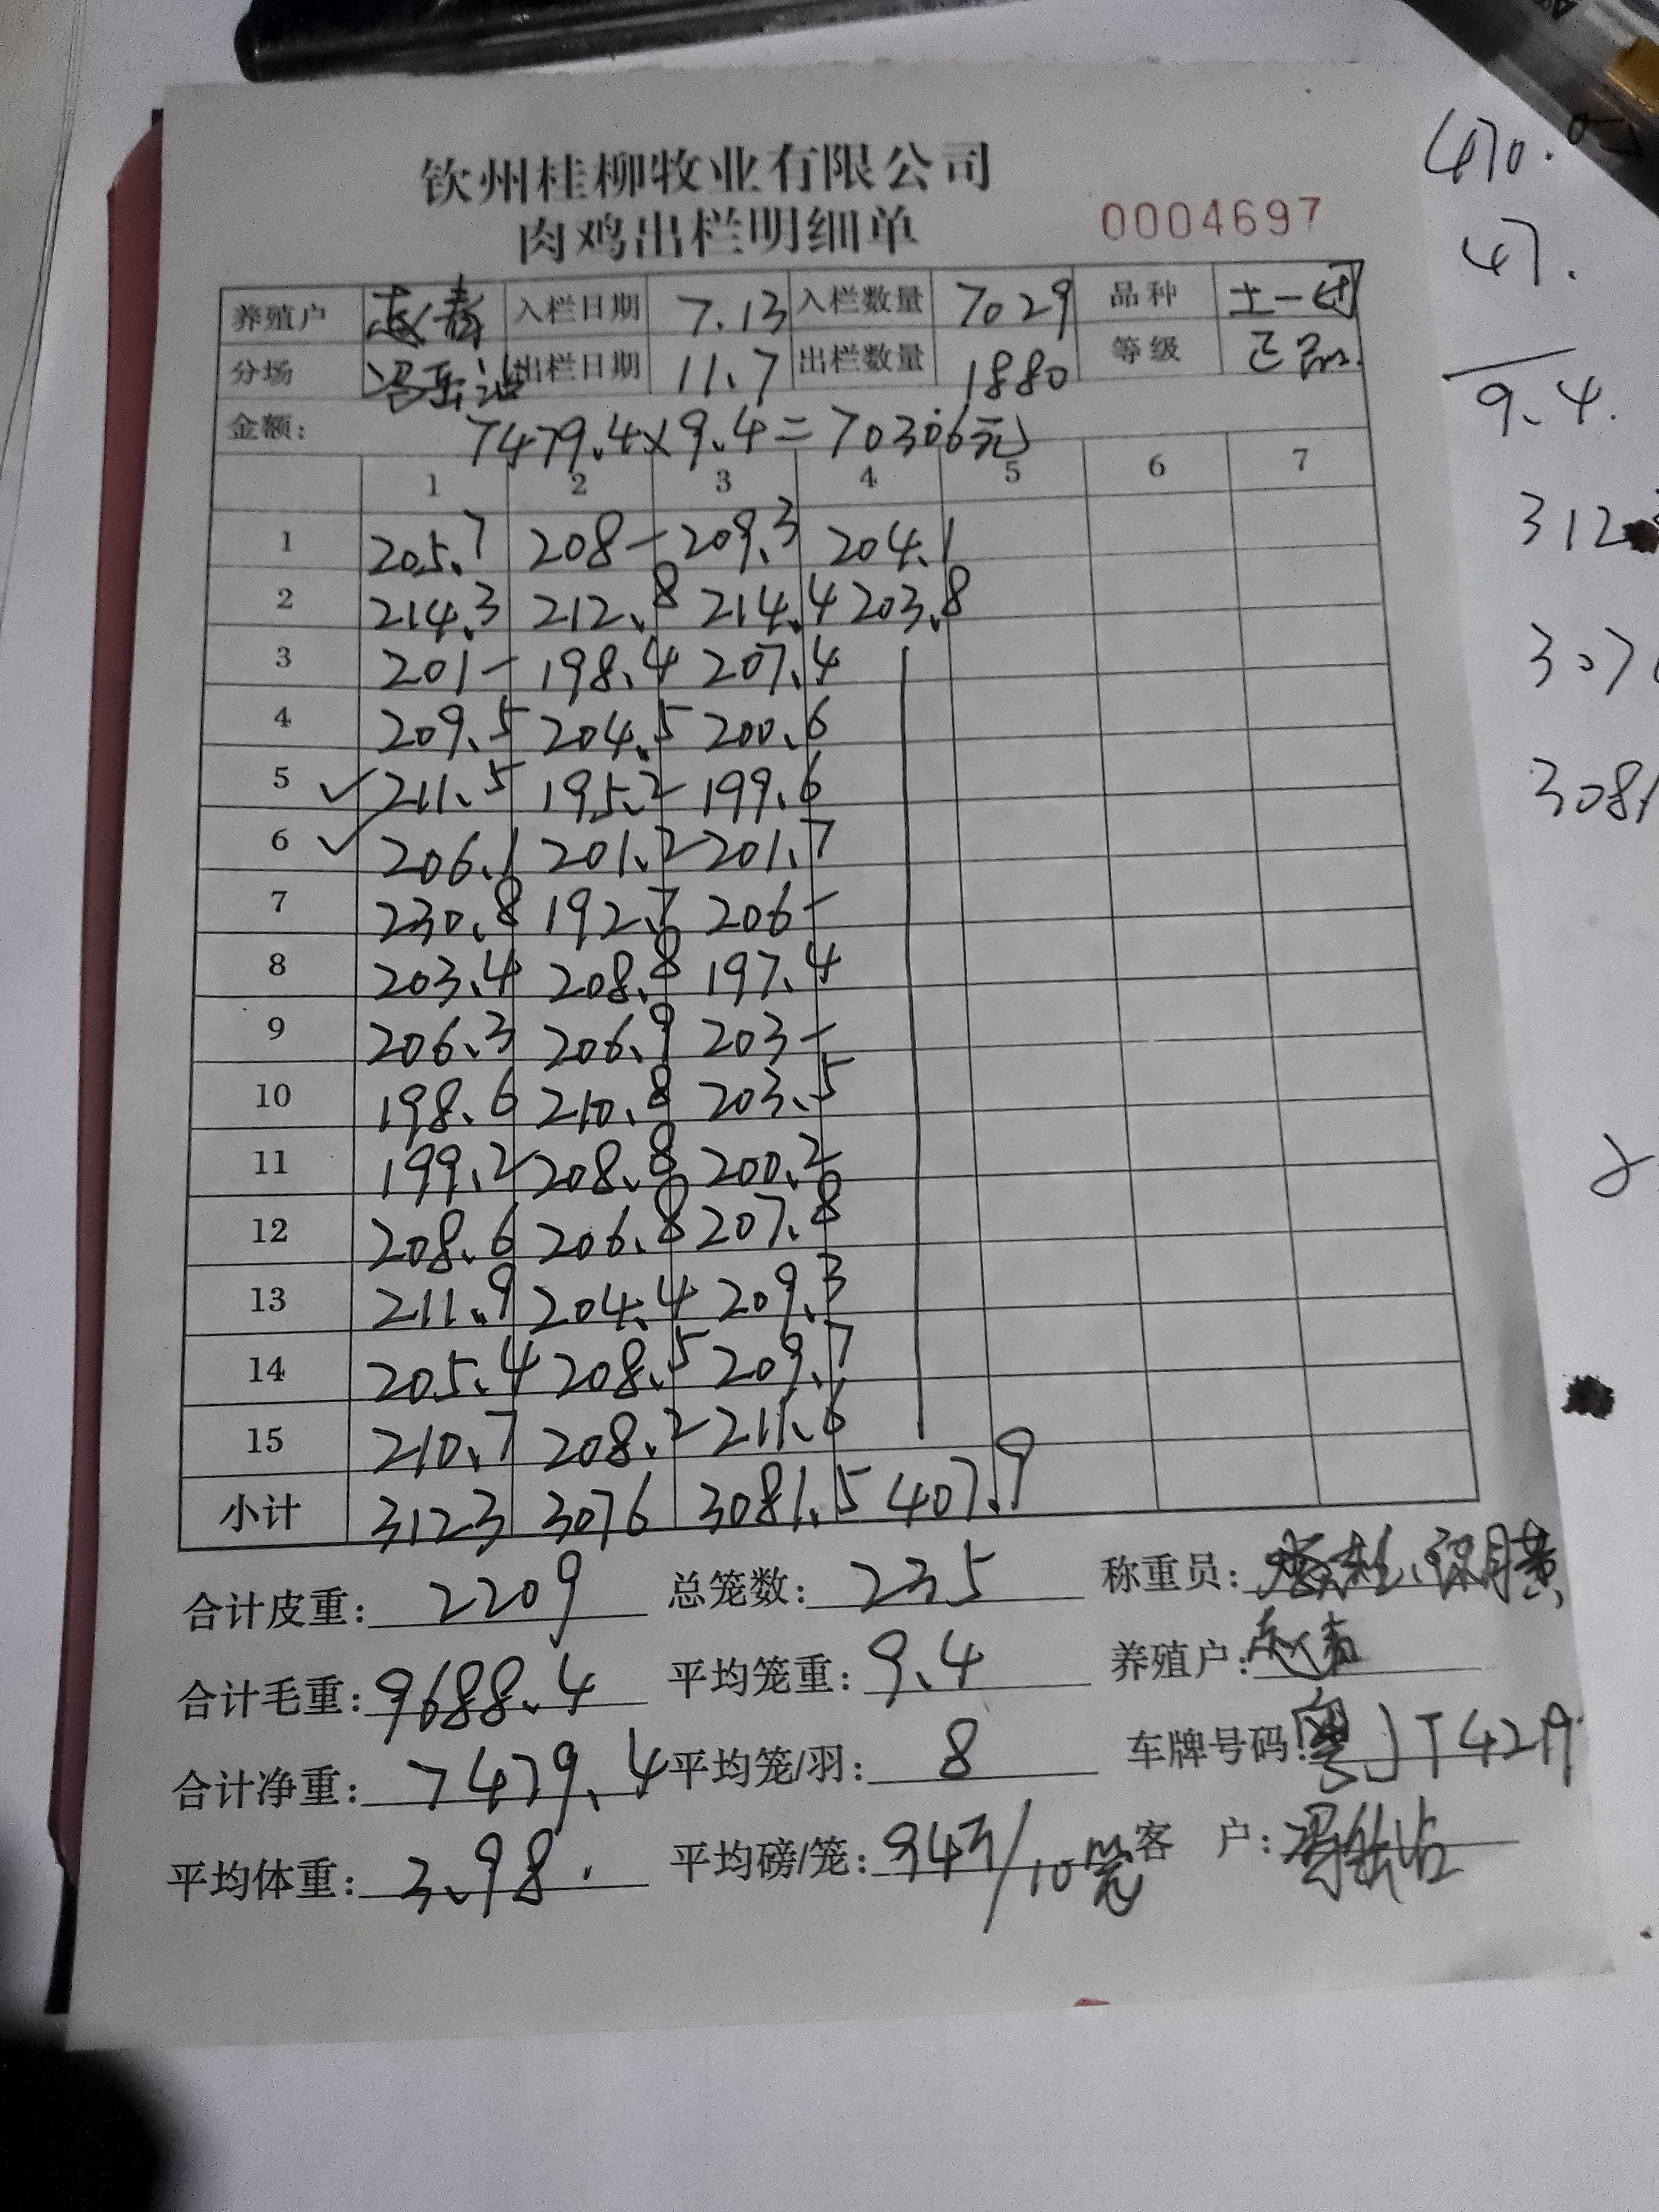 钦州桂柳牧业有限公司
肉鸡出栏明细单 0004697
养殖户 赵春 入栏日期 7.13 入栏数量 7029 品种 土一
分场 出栏日期 11.7 出栏数量 1880 等级 正品
金额: 7479.4×9.4=70306元
1 2 3 4 5 6 7
1 205.7 208- 209.3 204.1
2 214.3 212.8 214.4 203.8
3 201- 198.4 207.4
4 209.5 204.5 200.6
5 ✓ 211.5 195.2 199.6
6 ✓ 206.1 201.2 201.7
7 230.8 192.7 206-
8 203.4 208.8 197.4
9 206.3 206.9 203-
10 198.6 210.8 203.5
11 199.2 208.8 200.2
12 208.6 206.8 207.8
13 211.9 204.4 209.3
14 205.4 208.5 209.7
15 210.7 208.2 211.6
小计 3123 3076 3081.5 407.9
合计皮重: 2209 总笼数: 235 称重员:
合计毛重: 9688.4 平均笼重: 9.4 养殖户:
合计净重: 7479.4 平均笼/羽: 8 车牌号码: 粤JT42
平均体重: 3.98. 平均磅/笼: 94斤/10笼 客 户:
470.
47.
9.4.
312
307
3081